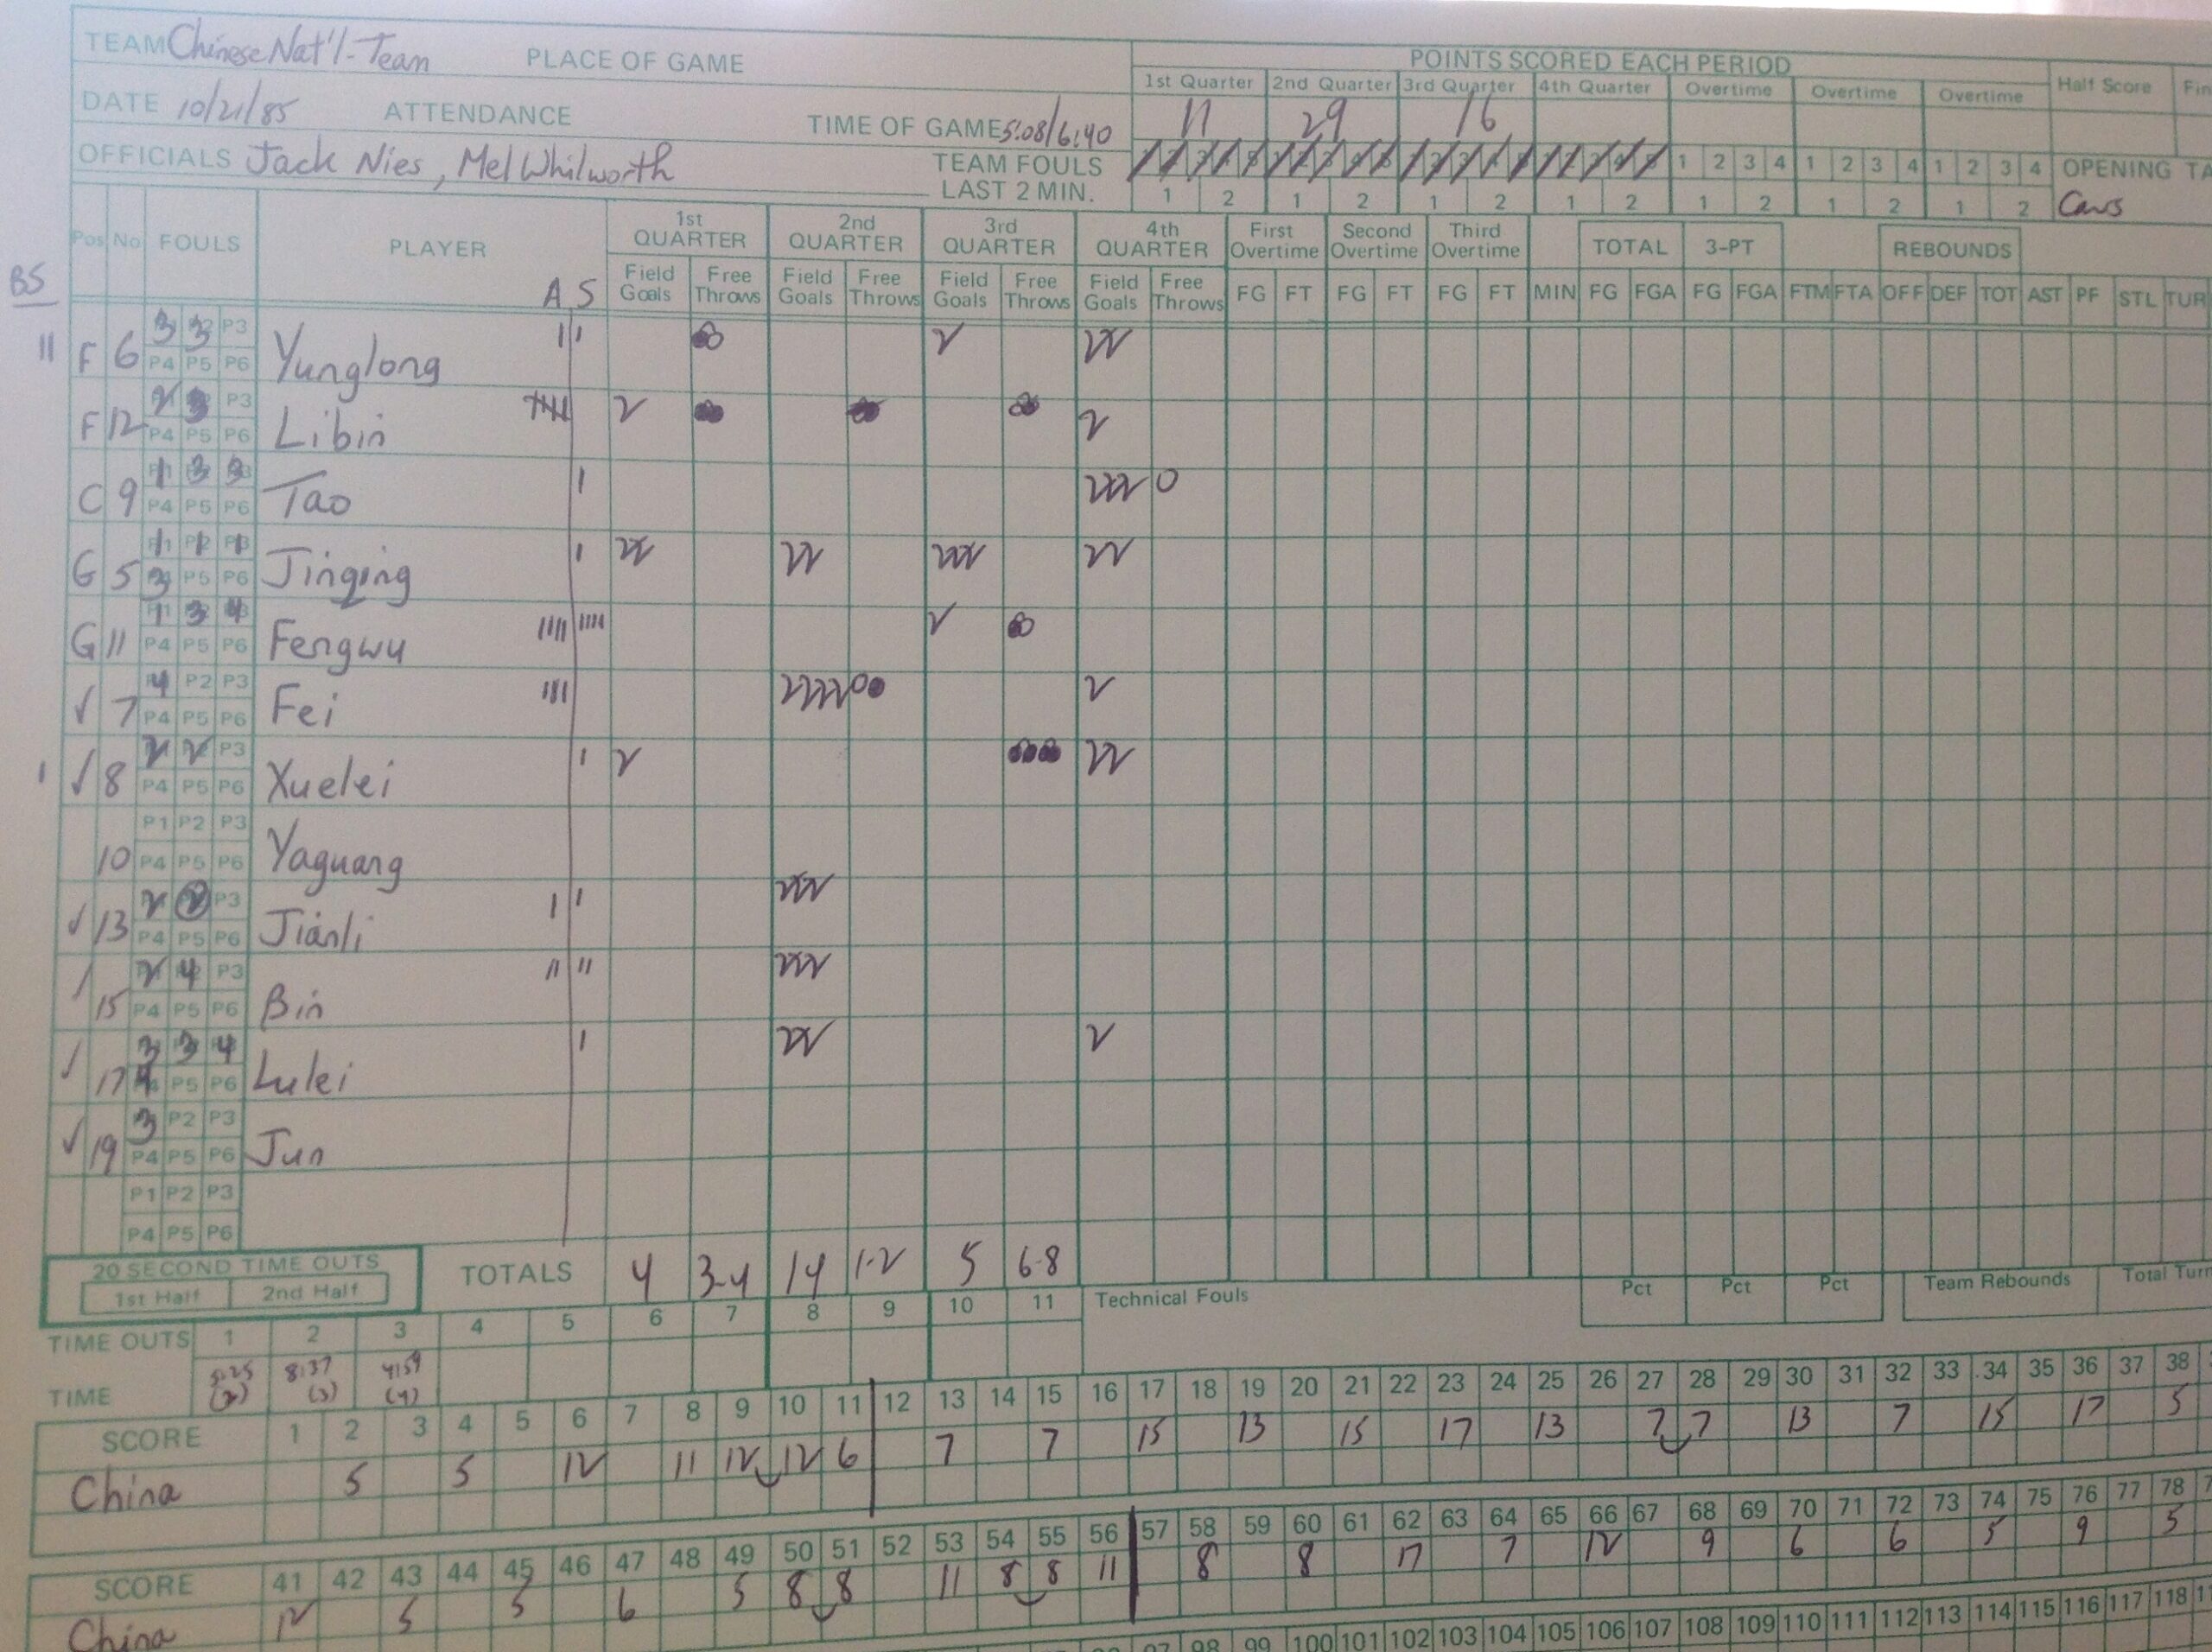 TEAM Chinese Nat'l-Team PLACE OF GAME POINTS SCORED EACH PERIOD
1st Quarter 2nd Quarter 3rd Quarter 4th Quarter Overtime Overtime Overtime Half Score Fin
DATE 10/21/85 ATTENDANCE TIME OF GAME 5:08/6:40 11 29 16
OFFICIALS Jack Nies, Mel Whilworth TEAM FOULS 1 2 3 4 1 2 3 4 1 2 3 4 OPENING TA
LAST 2 MIN. 1 2 1 2 1 2 1 2 1 2 1 2 1 2 Cavs
Pos No FOULS PLAYER 1st QUARTER 2nd QUARTER 3rd QUARTER 4th QUARTER First Overtime Second Overtime Third Overtime TOTAL 3-PT REBOUNDS
BS A S Field Goals Free Throws Field Goals Free Throws Field Goals Free Throws Field Goals Free Throws FG FT FG FT FG FT MIN FG FGA FG FGA FTM FTA OFF DEF TOT AST PF STL TUR
11 F 6 3 3 P3 P4 P5 P6 Yunglong
F 12 2 3 P3 P4 P5 P6 Libin
C 9 1 3 3 P4 P5 P6 Tao
G 5 1 1 1 3 P5 P6 Jinqing
G 11 1 3 4 P4 P5 P6 Fengwu
✓ 7 4 P2 P3 P4 P5 P6 Fei
1 ✓ 8 2 2 P3 P4 P5 P6 Xuelei
10 P1 P2 P3 P4 P5 P6 Yaguang
✓ 13 2 2 P3 P4 P5 P6 Jianli
15 2 4 P3 P4 P5 P6 Bin
✓ 17 3 3 4 4 P5 P6 Lulei
✓ 19 3 P2 P3 P4 P5 P6 Jun
P1 P2 P3
P4 P5 P6
20 SECOND TIME OUTS TOTALS 4 3-4 14 1-2 5 6-8
1st Half 2nd Half Technical Fouls Pct Pct Pct Team Rebounds Total Turn
TIME OUTS 1 2 3 4 5 6 7 8 9 10 11
TIME 8:37 (3) 4:59 (4)
SCORE 1 2 3 4 5 6 7 8 9 10 11 12 13 14 15 16 17 18 19 20 21 22 23 24 25 26 27 28 29 30 31 32 33 34 35 36 37 38
China 5 5 12 11 12 12 6 7 7 15 13 15 17 13 7 7 13 7 15 17 5
SCORE 41 42 43 44 45 46 47 48 49 50 51 52 53 54 55 56 57 58 59 60 61 62 63 64 65 66 67 68 69 70 71 72 73 74 75 76 77 78
China 12 5 5 6 5 8 8 11 8 8 11 8 8 17 7 12 9 6 6 5 9 5
98 99 100 101 102 103 104 105 106 107 108 109 110 111 112 113 114 115 116 117 118